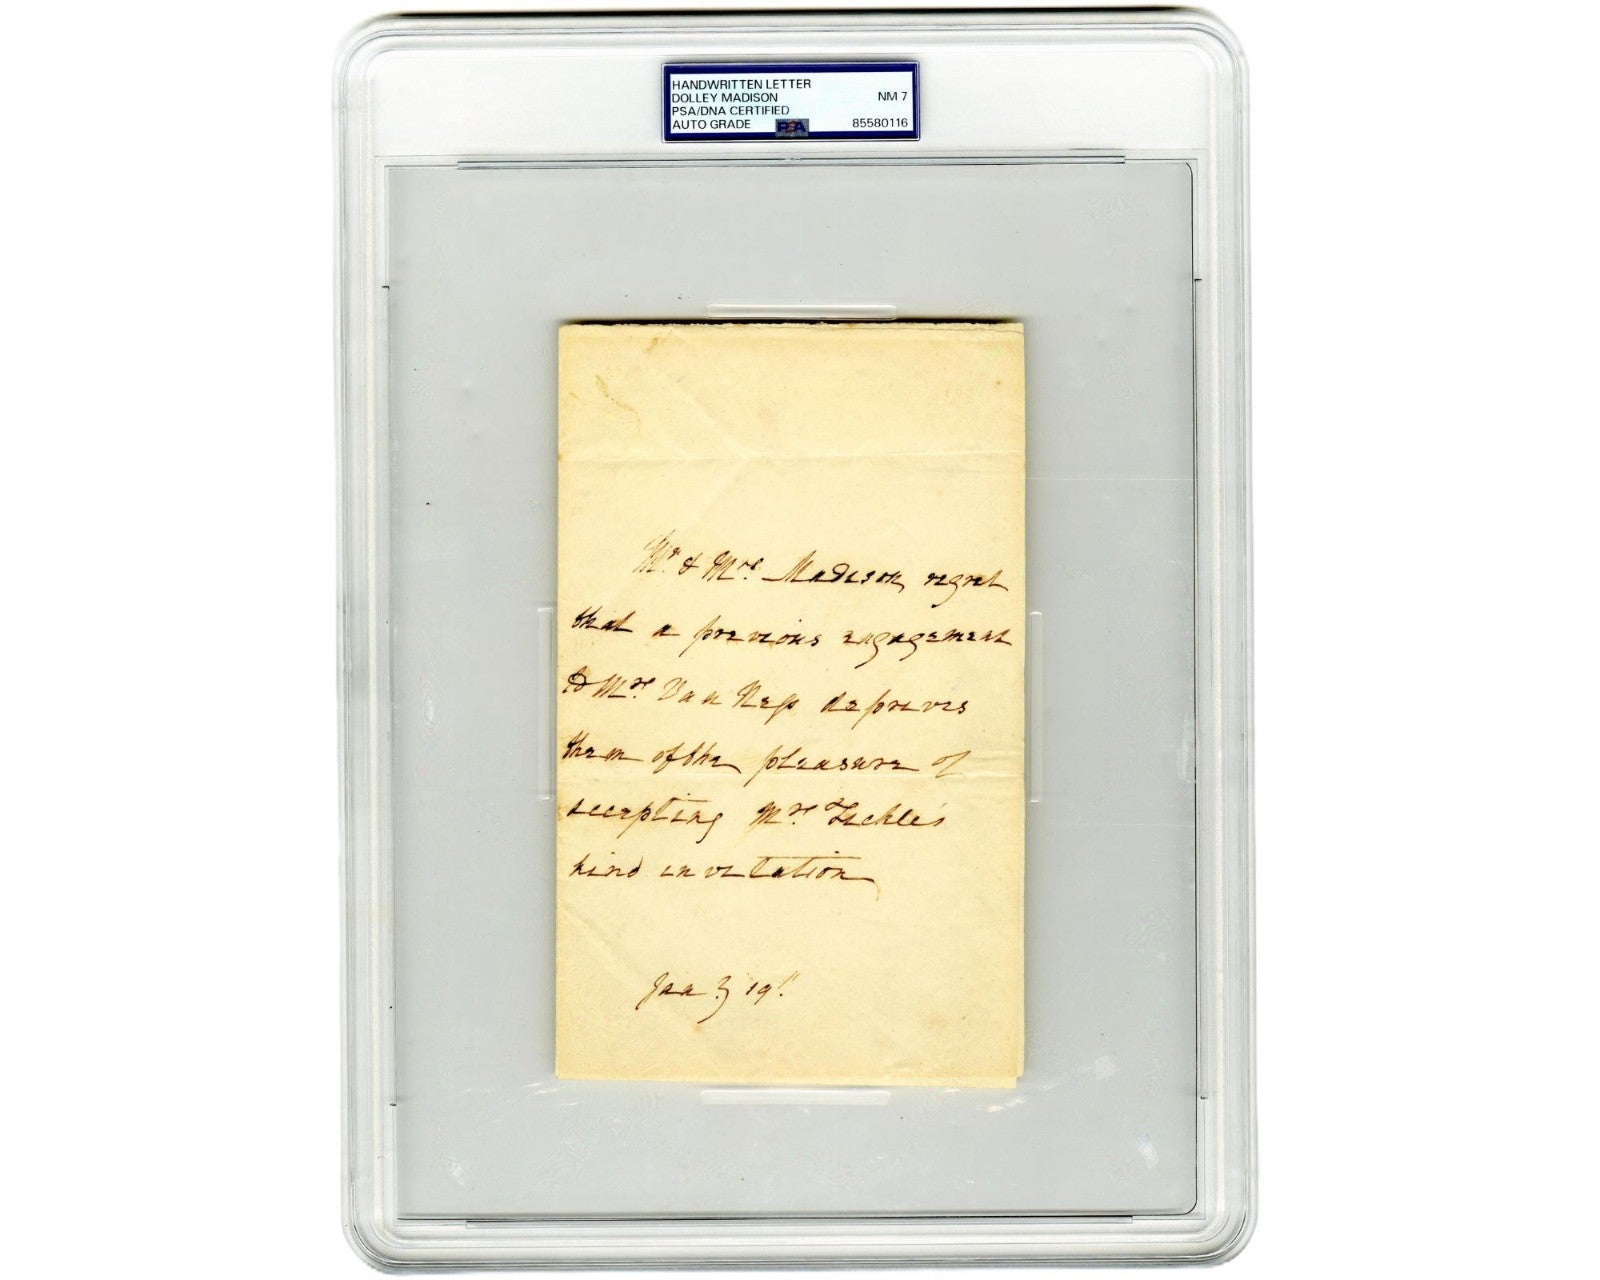 HANDWRITTEN LETTER
DOLLEY MADISON NM 7
PSA/DNA CERTIFIED
AUTO GRADE PSA 85580116
Mr. & Mrs. Madison regret
that a previous engagement
to Mrs. Van Ness deprives
them of the pleasure of
accepting Mrs. Tuckle's
kind invitation
Jan.y 19th